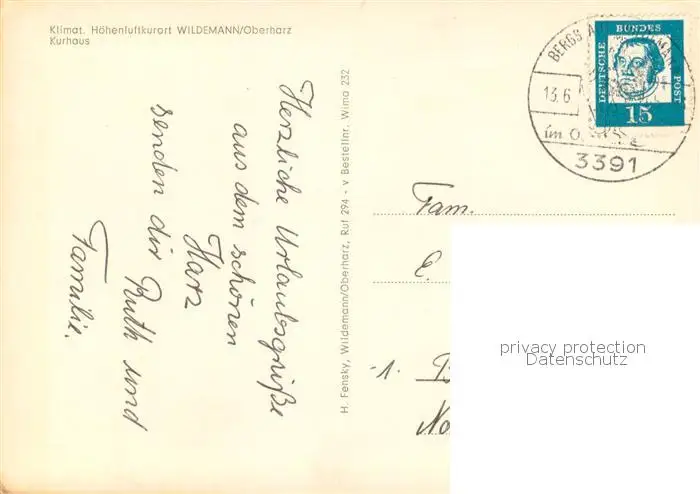 Klimat. Höhenluftkurort WILDEMANN/Oberharz
Kurhaus
Herzliche Urlaubsgrüße
aus dem schönen
Harz
senden dir Ruth und
Familie.
H. Fensky, Wildemann/Oberharz, Ruf 294 - v Bestellnr. Wima 232
DEUTSCHE BUNDES POST
15
BERGS
13.6
im O
3391
Fam.
E.
-1.
privacy protection
Datenschutz